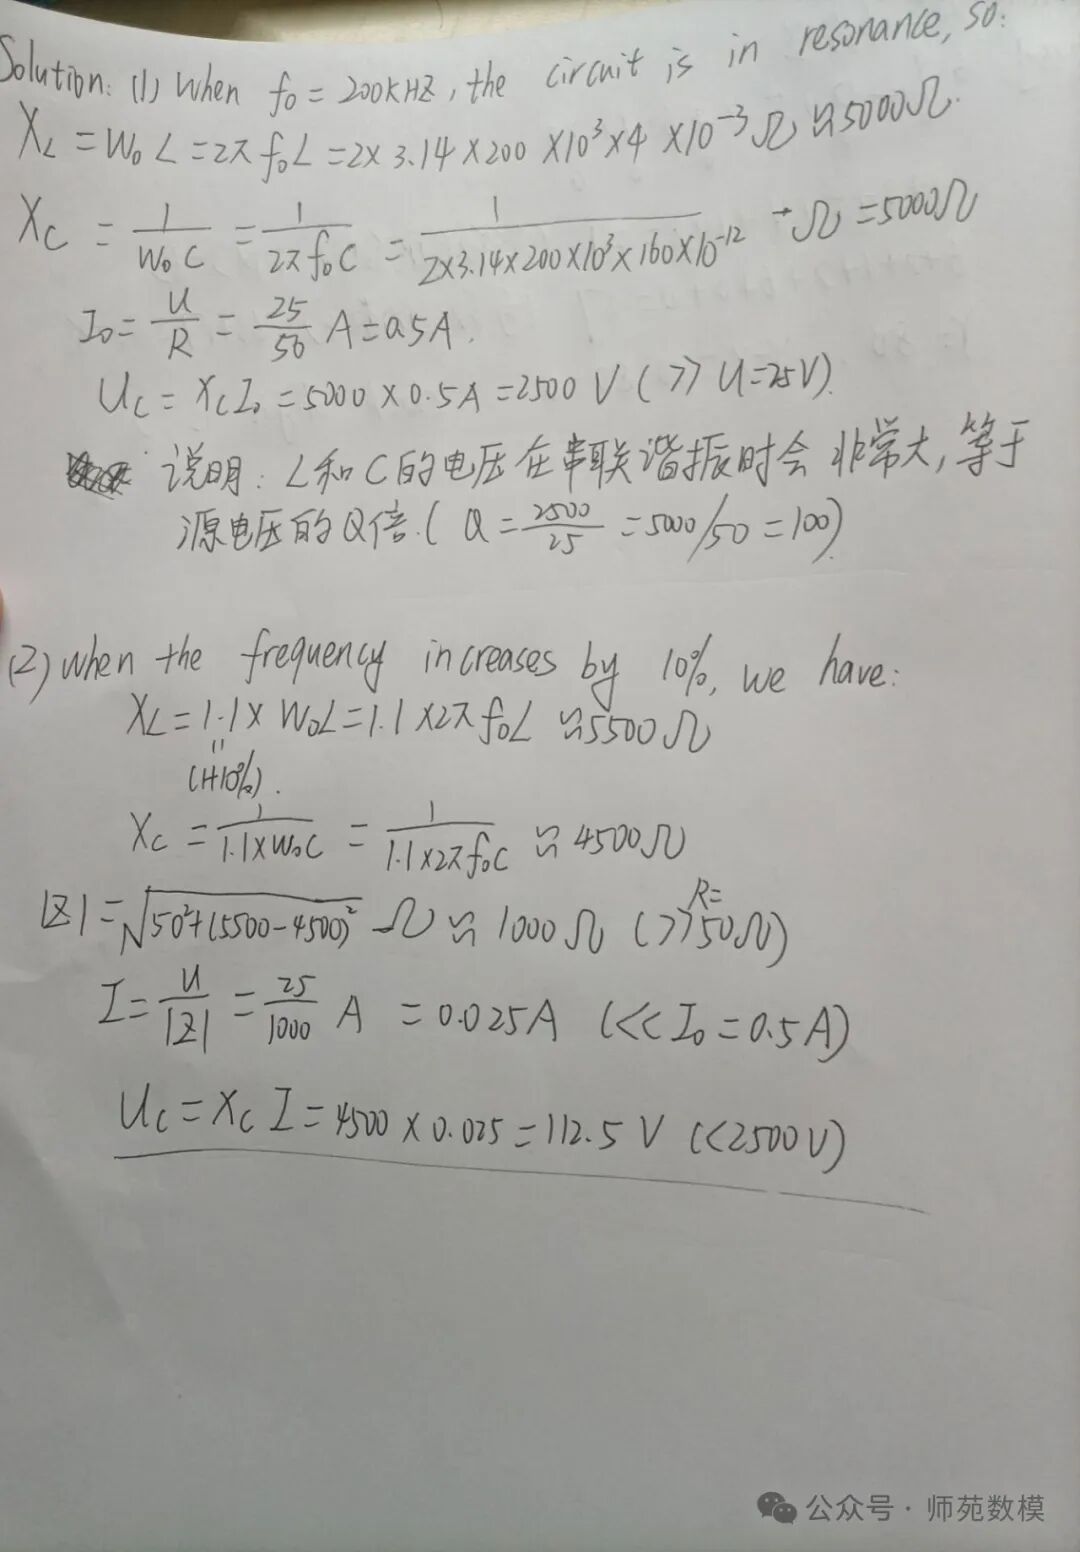 Solution: (1) When f₀ = 200kHZ, the circuit is in resonance, so:
X_L = W₀L = 2π f₀L = 2×3.14×200×10³×4×10⁻³Ω ≈ 5000Ω.
X_C = 1/(W₀C) = 1/(2π f₀C) = 1/(2×3.14×200×10³×160×10⁻¹²) Ω = 5000Ω
I₀ = U/R = 25/50 A = 0.5A.
U_C = X_C I₀ = 5000×0.5A = 2500 V (>> U=25V).
说明: L和C的电压在串联谐振时会非常大,等于
源电压的Q倍.( Q = 2500/25 = 5000/50 = 100)
(2) when the frequency increases by 10%, we have:
X_L = 1.1× W₀L = 1.1×2π f₀L ≈ 5500Ω
(1+10%).
X_C = 1/(1.1×W₀C) = 1/(1.1×2π f₀C) ≈ 4500Ω
|Z| = √(50²+(5500-4500)²) Ω ≈ 1000Ω (>>R=50Ω)
I = U/|Z| = 25/1000 A = 0.025A (<< I₀ = 0.5A)
U_C = X_C I = 4500×0.025 = 112.5 V (<2500V)
公众号 · 师苑数模